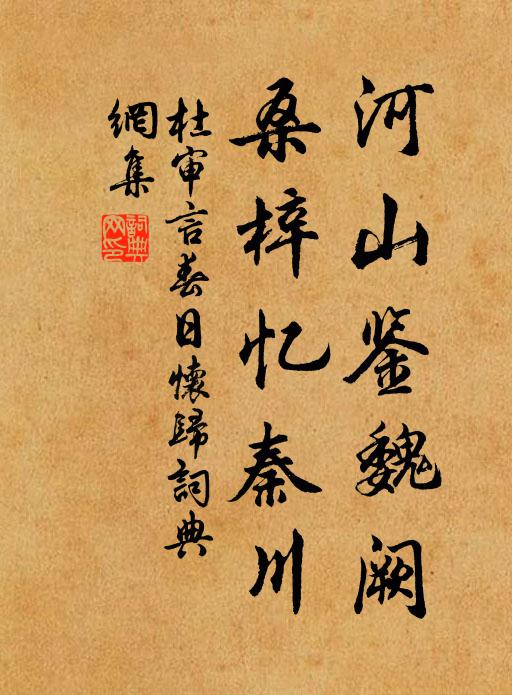 河山鉴魏阙
桑梓忆秦川
杜审言春日懷歸詞典
網集
詞典网印